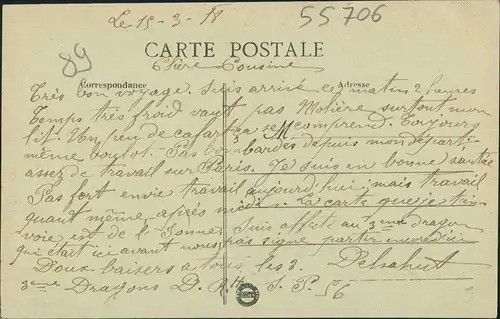 Le 15-3-18
55706
89
CARTE POSTALE
Chère Cousine
Correspondance
Adresse
Très bon voyage. Suis arrivé ce matin 2 heures
Temps très froid vaut pas Molière surtout mon
lit. Un peu de cafard ça se comprend. Toujours
même boulot. Pas bombardés depuis mon départ
assez de travail sur Paris. Je suis en bonne santée
Pas fort envie travail aujourd'hui, mais travail
quant même, après midi. La carte que je t'en
voie est de la Somme. Suis affecté au 3ème Dragon
qui était ici avant nous pas signe partir encore d'ici
Doux baisers a tous les 3. Delsahut
3ème Dragons D. S. P. 56